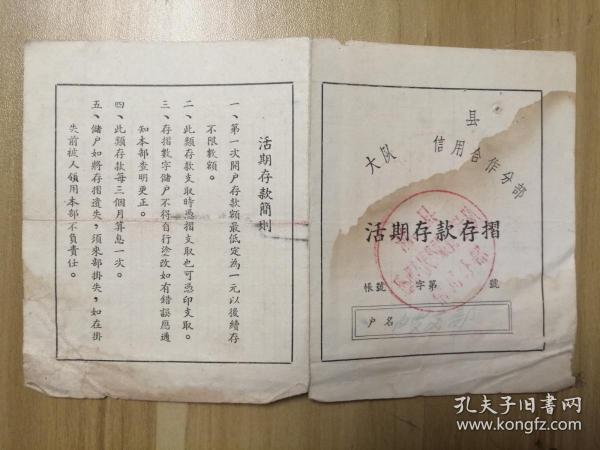 县
大队 信用合作分部
活期存款存摺
帳號 字第 號
户名
活期存款簡則
一、第一次開户存款額最低定為一元以後續存
不限數額。
二、此類存款支取時憑摺支取也可憑印支取。
三、存摺數字儲户不得自行塗改如有錯誤應通
知本部查明更正。
四、此類存款每三個月算息一次。
五、儲户如將存摺遺失，須來部掛失，如在掛
失前被人領用本部不負責任。
孔夫子旧书网
www.kongfz.com